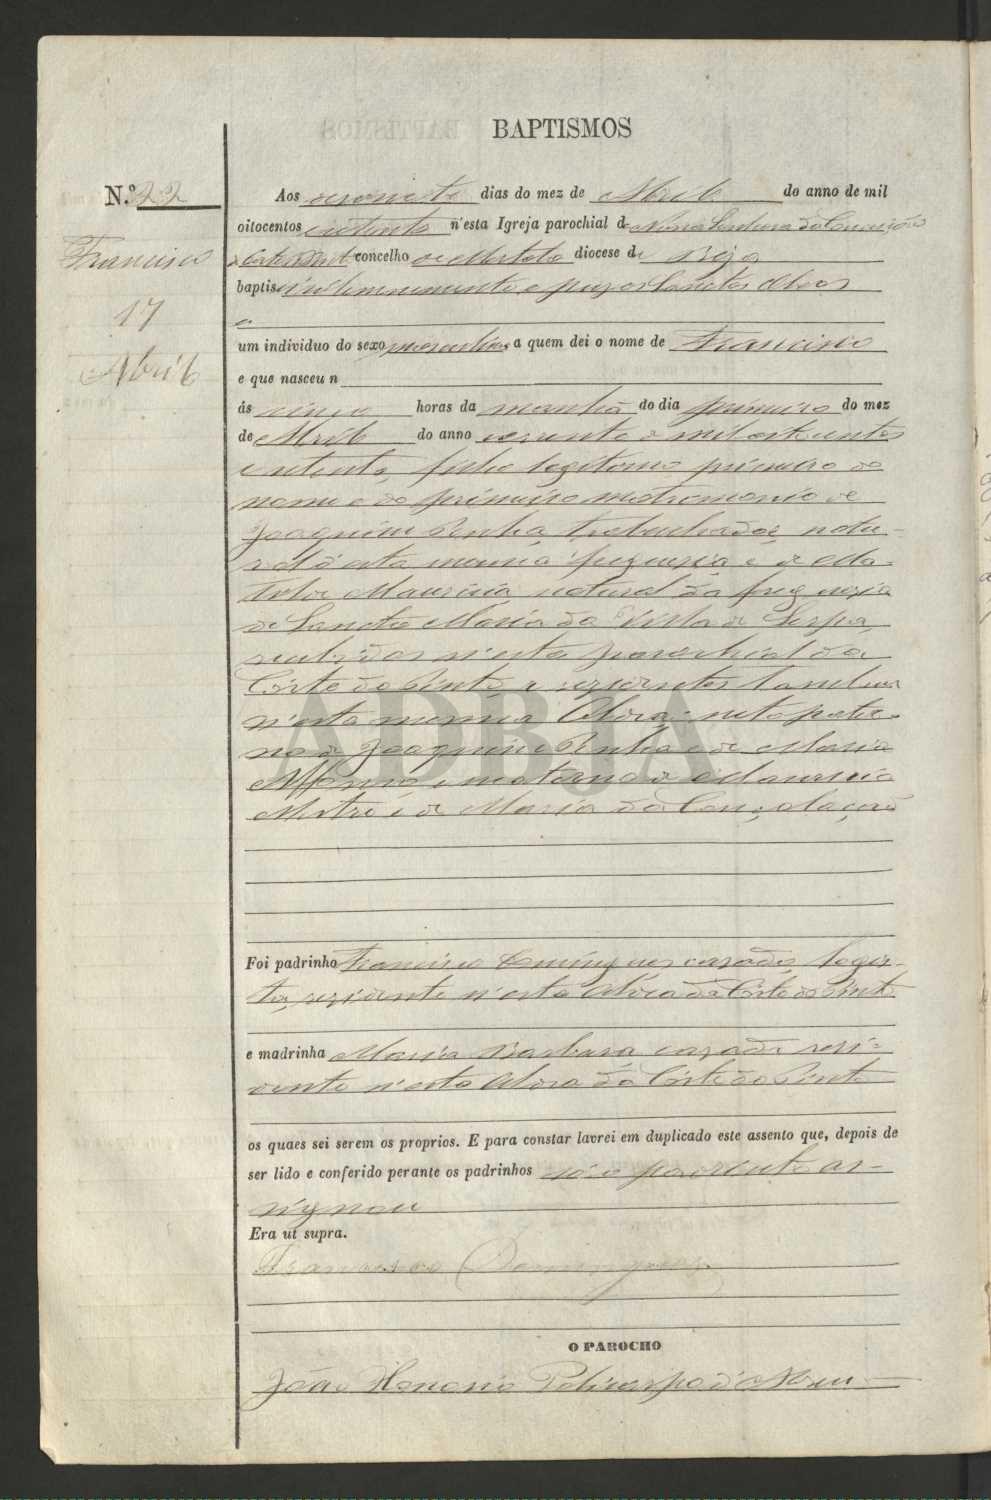 BAPTISMOS
N.º 22
Francisco
17
Abril
Aos desasete dias do mez de Abril do anno de mil
oitocentos e oitenta n'esta Igreja parochial de Nossa Senhora da Conceição
concelho de Mertola diocese de Beja
baptisei solemnemente e puz os Sanctos Oleos
um individuo do sexo masculino a quem dei o nome de Francisco
e que nasceu n
ás cinco horas da manhã do dia primeiro do mez
de Abril do anno corrente de mil oitocentos
e oitenta, filho legitimo primeiro do
nome e do primeiro matrimonio de
Joaquim Penha, trabalhador, natu-
ral d'esta mesma freguezia e de
Mauricia natural da freguezia
de Sancta Maria da Villa de Serpa,
recebidos n'esta parochial da
Corte do Pinto, e rezidentes tambem
n'esta mesma Aldea: neto pater-
no de Joaquim Penha e de Maria
Affonso e materno de Mauricio
Mestre e de Maria da Consolação
Foi padrinho Francisco Domingues cazado, logis-
ta, rezidente n'esta Aldea da Corte do Pinto
e madrinha Maria Barbara, cazada resi-
dente n'esta Aldea da Corte do Pinto
os quaes sei serem os proprios. E para constar lavrei em duplicado este assento que, depois de
ser lido e conferido perante os padrinhos só o padrinho as-
signou
Era ut supra.
Francisco Domingues
O PAROCHO
João Honorio Policarpo d'Abreu
ADBJA